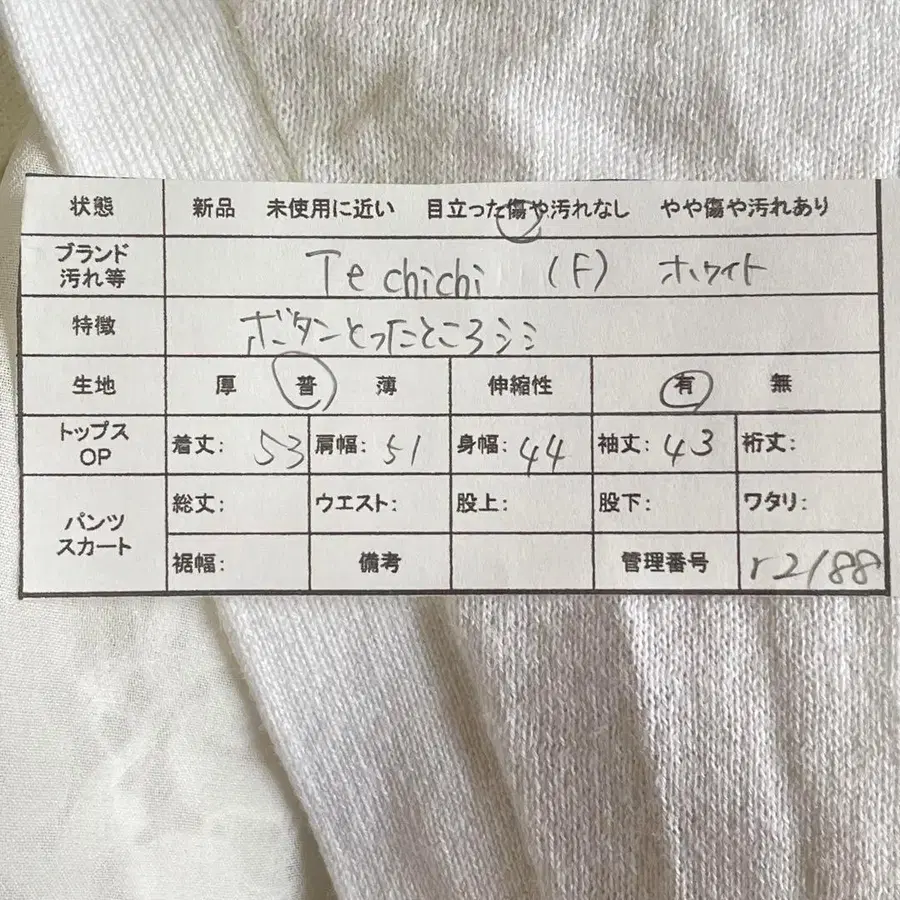 状態 新品 未使用に近い 目立った傷や汚れなし やや傷や汚れあり
ブランド
汚れ等 Te chichi (F) ホワイト
特徴 ボタンとったところシミ
生地 厚 普 薄 伸縮性 有 無
トップス
OP 着丈: 53 肩幅: 51 身幅: 44 袖丈: 43 裄丈:
パンツ
スカート 総丈: ウエスト: 股上: 股下: ワタリ:
裾幅: 備考 管理番号 r2188